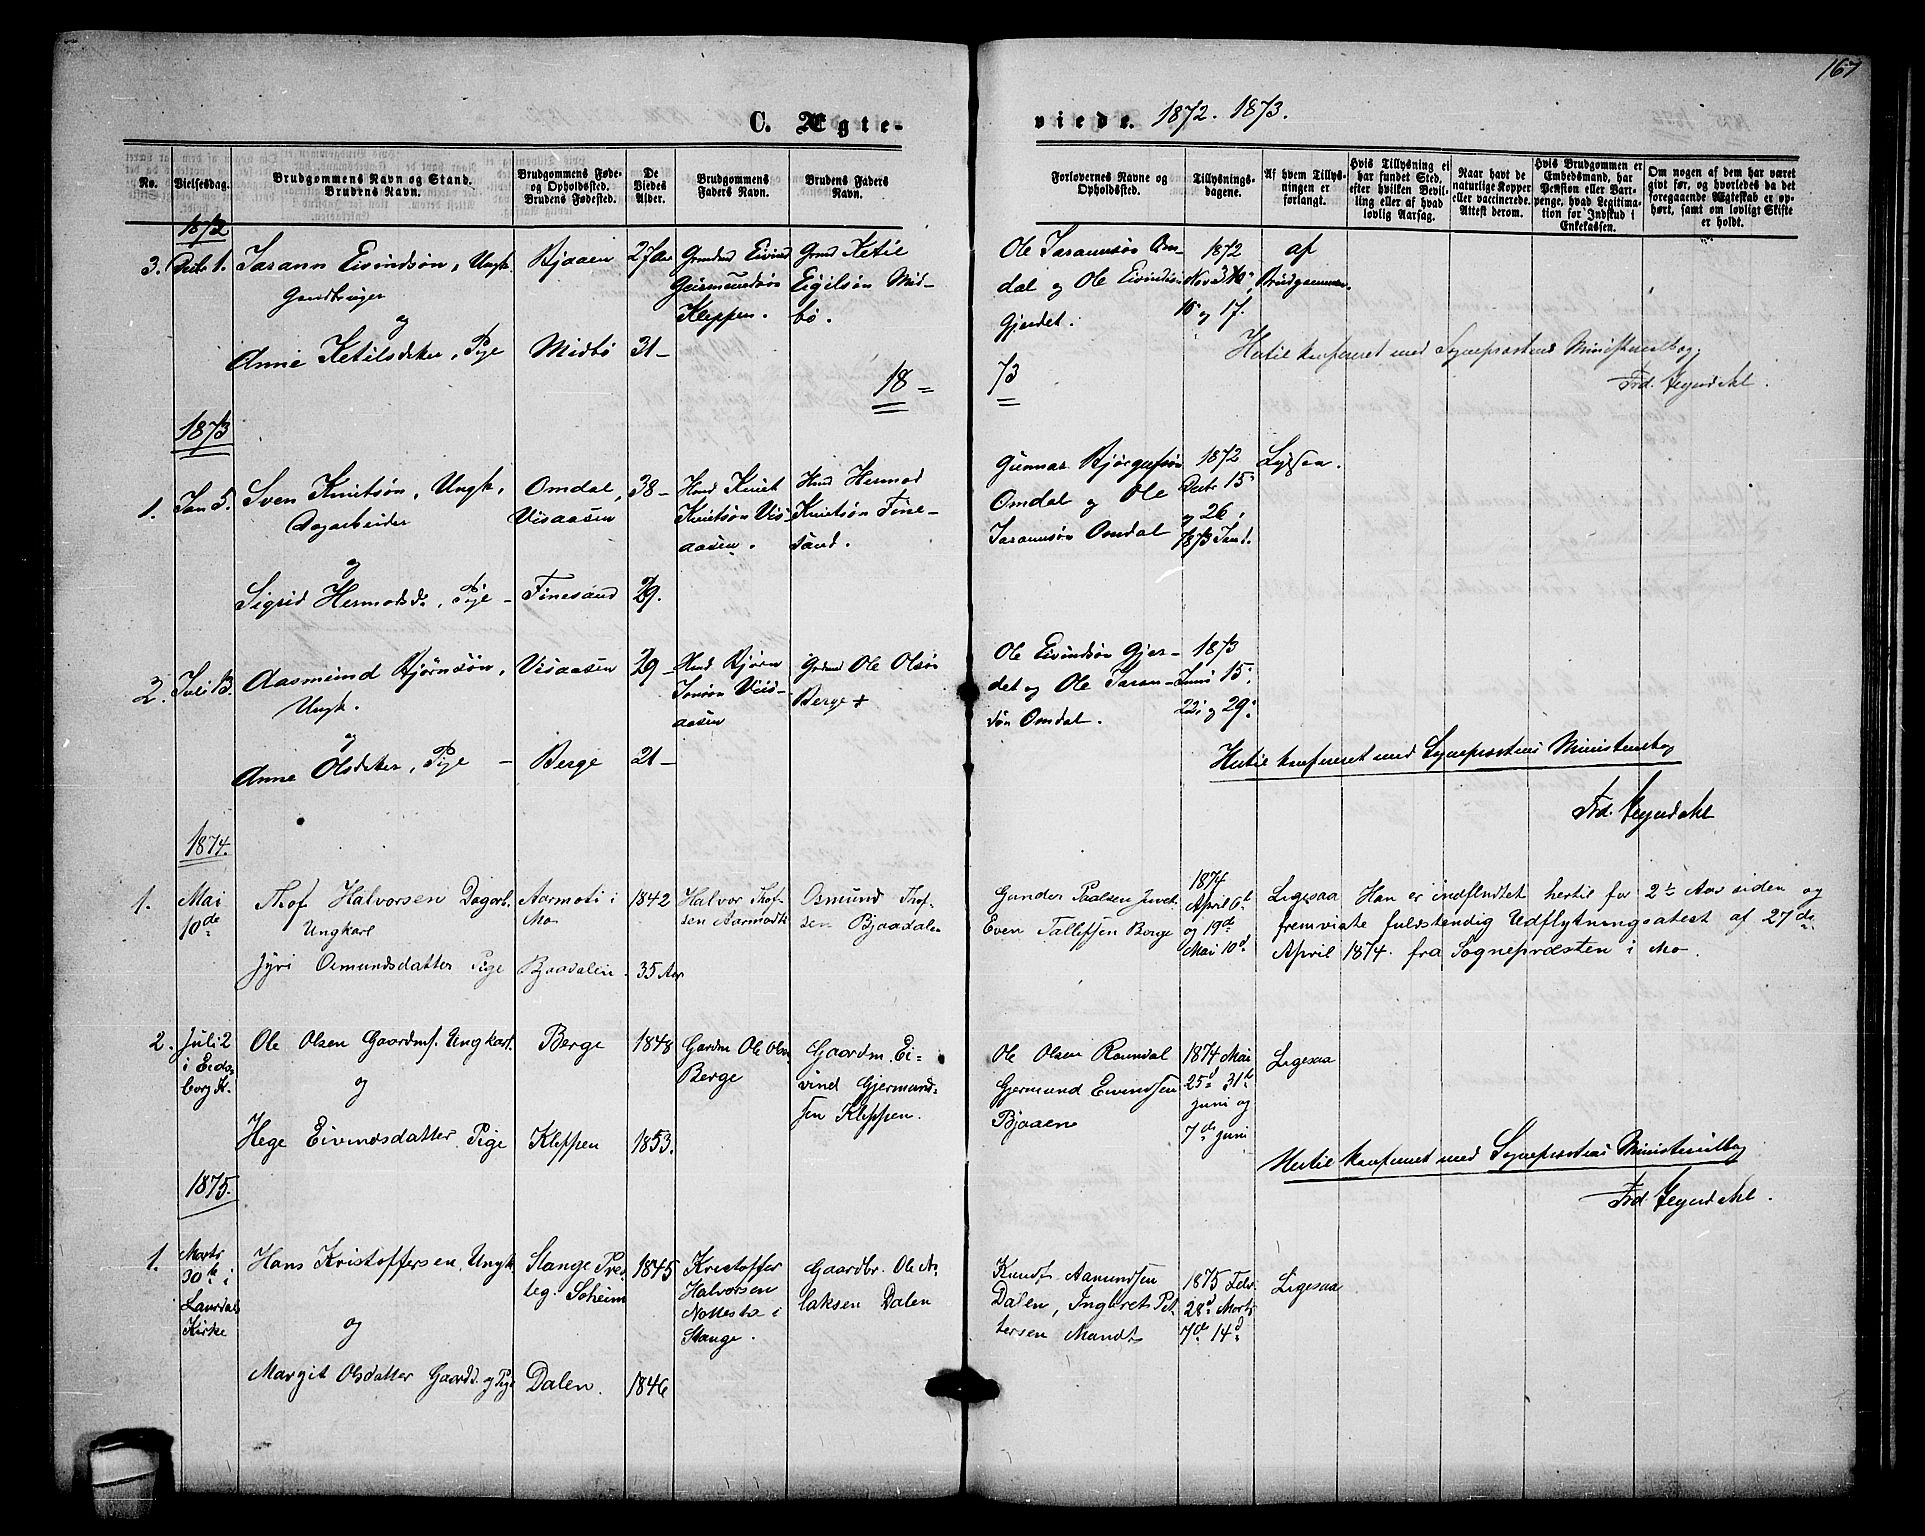 167
C. Ægte-
viede. 1872. 1873.
No.
Vielsesdag.
Brudgommens Navn og Stand.
Brudens Navn.
Brudgommens Føde-
og Opholdsted.
Brudens Fødested.
De
Viedes
Alder.
Brudgommens
Faders Navn.
Brudens Faders
Navn.
Forlovernes Navne og
Opholdsted.
Tillysnings-
dagene.
Af hvem Tillys-
ningen er
forlangt.
Hvis Tillysning ei
har fundet Sted,
efter hvilken Bevil-
ling eller af hvad
lovlig Aarsag.
Naar havt de
naturlige Kopper
eller vaccinerede.
Attest derom.
Hvis Brudgommen er
Embedsmand, har
Pension eller Vart-
penge, hvad Legitima-
tion for Indskud i
Enkekassen.
Om nogen af dem har været
givt før, og hvorledes da det
foregaaende Ægteskab er op-
hørt, samt om lovligt Skifte
er holdt.
1872
3. Decbr 1.
Tarann Eivindsøn, Ungk.
og
Anne Ketilsdtter, Pige
Bjaaen
Midbö
27
31
Eivind
Geirmundsøn
Kleppen.
Ketil
Eigilsön Mid-
bö.
Ole Taransön Om-
dal og Ole Eivindsön
Gjerdet.
1872
Nov. 3
10 og 17.
af
Brudgommen.
Hertil konfereret med Sogneprestens Ministerialbog
Frd.
18 = 73
1873
1. Jan 5.
Sven Knutsøn, Ungk,
Dagarbeider
og
Sigrid Hermodsd., Pige
Omdal,
Visaasen
Finesand
38
29.
Knut
Knutsøn Vis-
aasen.
Hermod
Knutsøn Fine-
sand.
Gunnar Bjørgufsøn
Omdal og Ole
Taransøn Omdal
1872
Decbr 15
og 26
1873 Jan
2. Juli 13.
Aasmund Bjørnsøn,
Ungk.
og
Anne Olsdtter, Pige
Visaasen
Berge
29
21
Bjørn
Jonsøn Viis-
aasen
Ole Olsøn
Berge +
Ole Eivindsøn Gjer-
det og Ole Taran-
søn Omdal.
1873
Juni 15
22 og 29
Hertil konfereret med Sogneprestens Ministerialbog
Frd.
1874.
1. Mai
10de
Thof Halvorsen Dagarb.
Ungkarl
Jyri Osmundsdatter Pige
Aarmoti i
Mo
Bjaadalen
1842
35 Aar
Halvor Thof-
sen Aarmodt
Osmund Thof-
sen Bjaadalen
Gunder Paalsen Juvet
Even Tallefsen Berge
1874
April
og 19de
Mai 10d
Ligesaa
Han er indflyttet hertil for 2 Aar siden og
fremviste fuldstendig Udflytningsattest af 27de
April 1874. fra Sognepræsten i Mo.
2. Juli 2
i Eids-
borg K.
Ole Olsen Gaardmf. Ungkarl.
og
Hege Eivindsdatter Pige
Berge
Kleppen
1848
1853.
Gardm Ole Olsen
Berge
Gaardm. Ei-
vind Gjermund-
sen Kleppen.
Ole Olsen Ramdal
Gjermund Eivindsen
Bjaaene
1874 Mai
25d 31te
Juni og
7de Juni
Ligesaa
Hertil konfereret med Sogneprestens Ministerialbog
Frd.
1875.
1. Marts
30te i
Laurdals
Kirke
Hans Kristoffersen, Ungk.
og
Margit Olsdatter Gaardd. og Pige
Stange Pre-
steg. Soheim
Dalen.
1845
1846
Kristoffer
Halvorsen
i
Stange.
Gaardbr. Ole As-
laksen Dalen
Knudt Aamundsen
Dalen, Ingbret Pet-
tersen Mandt
1875 Febr
28d Marts
7de 14d
Ligesaa